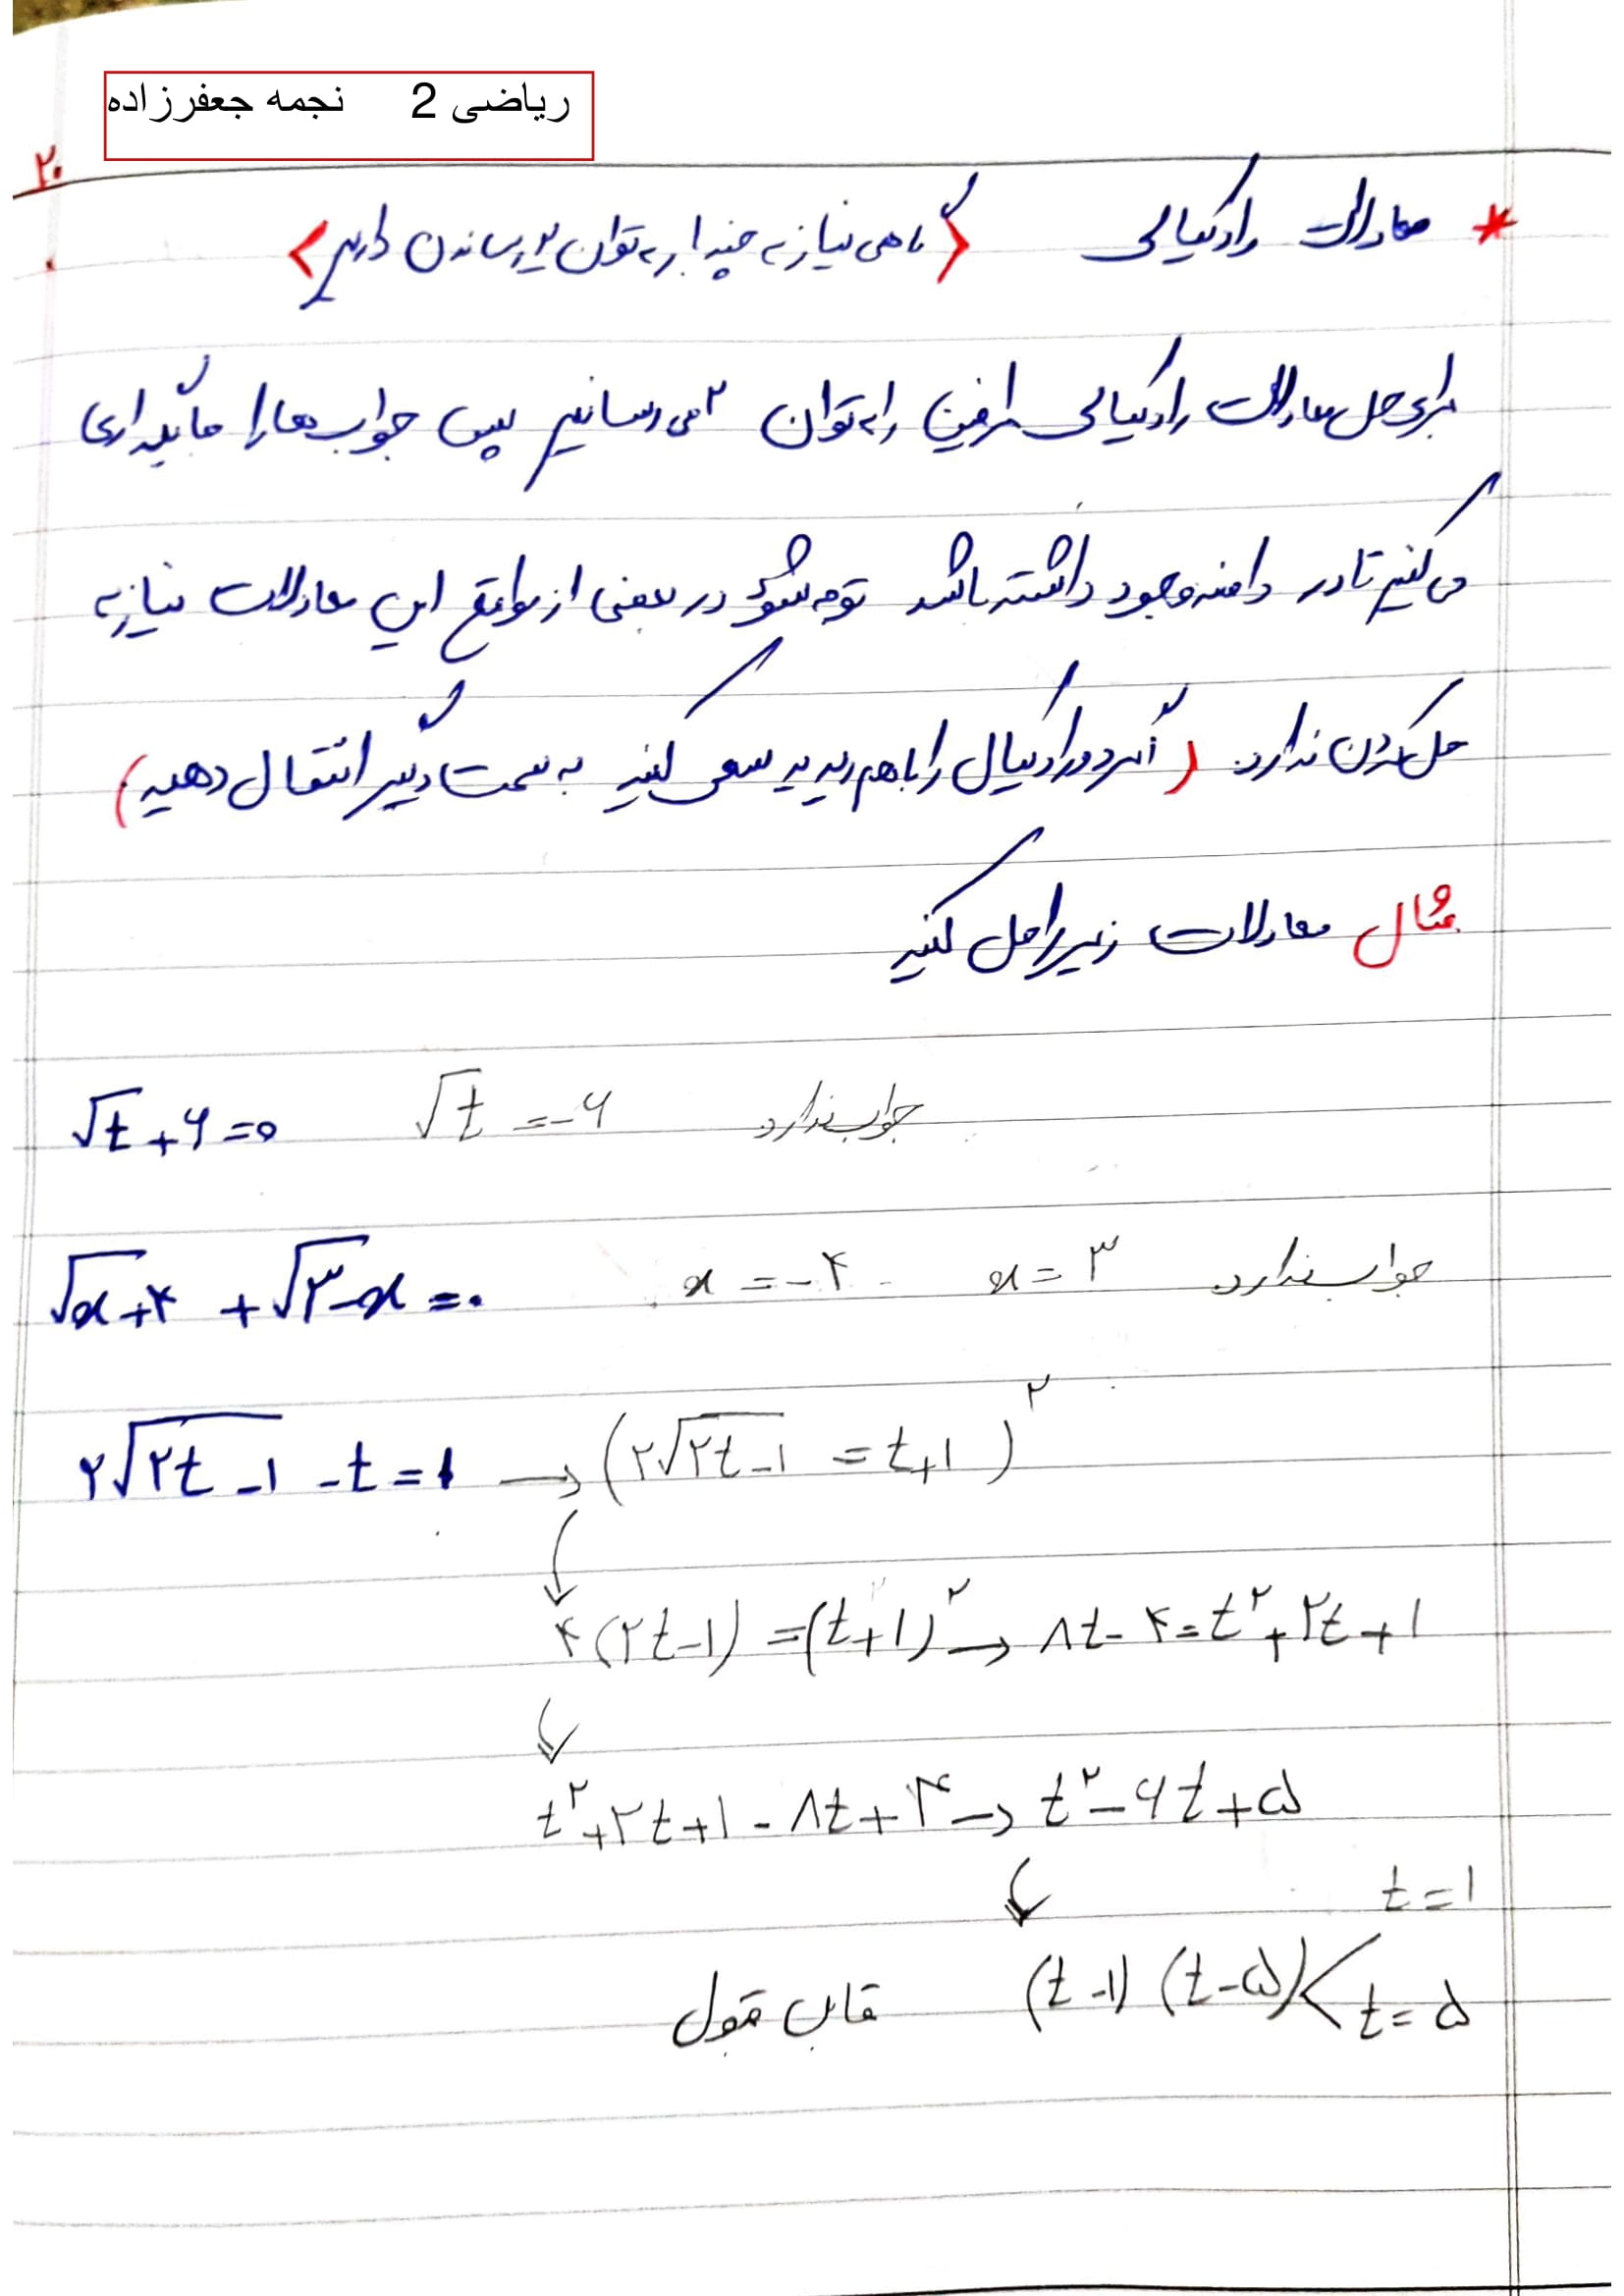 ریاضی 2 نجمه جعفرزاده
۲۰
* معادلات رادیکالی <گاهی نیاز به چند بار به توان ۲ رساندن داریم>
برای حل معادلات رادیکالی طرفین را به توان ۲ می رسانیم سپس جواب ها را جایگذاری
می کنیم تا در دامنه وجود داشته باشد توجه شود در بعضی از مواقع این معادلات نیاز به
حل کردن ندارد. (اگر دو رادیکال را باهم دیدید سعی کنید به سمت دیگر انتقال دهید)
مثال معادلات زیر را حل کنید
√t + ۶ = ۰ √t = -۶ جواب ندارد
√x+۴ + √۳-x = ۰ x = -۴ x = ۳ جواب ندارد
۲√۲t-۱ - t = ۱ → (۲√۲t-۱ = t+۱)^۲
۴(۲t-۱) = (t+۱)^۲ → ۸t-۴ = t^۲+۲t+۱
t^۲+۲t+۱-۸t+۴ → t^۲-۶t+۵
t=۱
(t-۱)(t-۵) < t=۵ قابل قبول